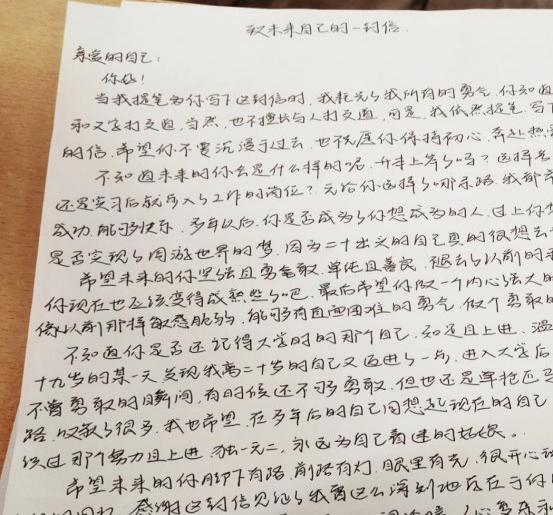 致未来自己的一封信.
亲爱的自己:
你好!
当我提笔为你写下这封信时,我耗光了我所有的勇气.你知道
和文字打交道,当然,也不擅长与人打交道,可是,我依然提笔,写下
的信.希望你不要沉浸于过去,也祝愿你保持初心,奔赴热
不知道未来的你会是什么样的呢.升本上岸了吗?选择
还是实习后就步入了工作的岗位?无论你选择了哪条路.我都
成功,能够快乐.多年以后,你是否成为了你想成为的人.过上你想
是否实现了周游世界的梦,因为二十出头的自己真的很想去
希望未来的你坚强且勇敢,单纯且善良.褪去了以前的
你现在也应该变得成熟些了吧.最后希望你做一个内心强大的
像以前那样敏感脆弱,能够有直面困难的勇气,做个勇敢的
不知道你是否还记得大学时的那个自己.知足且上进,温
十九岁的某一天发现我离二十岁的自己又迈进了一步,进入大学后
不曾勇敢的瞬间,有时候还不够勇敢.但也还是单枪匹马
路,收获了很多.我也希望,在多年后的自己回想起现在的自己
那个努力且上进 独一无二,永远为自己着迷的姑娘。
希望未来的你脚下有路,前路有灯,眼里有光,很开心
感谢这封信见证了我曾这么深刻地存在于